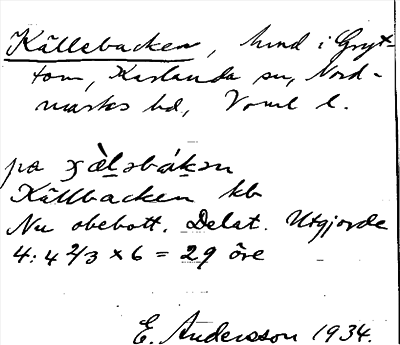 Källebacken, hmd i Gryt-
tom, Karlanda sn, Nord-
marks hd, Vrml l.
på
Källbacken kb
Nu obebott. Delat. Utgjorde
4:4 2/3 × 6 = 29 öre
E. Andersson 1934.